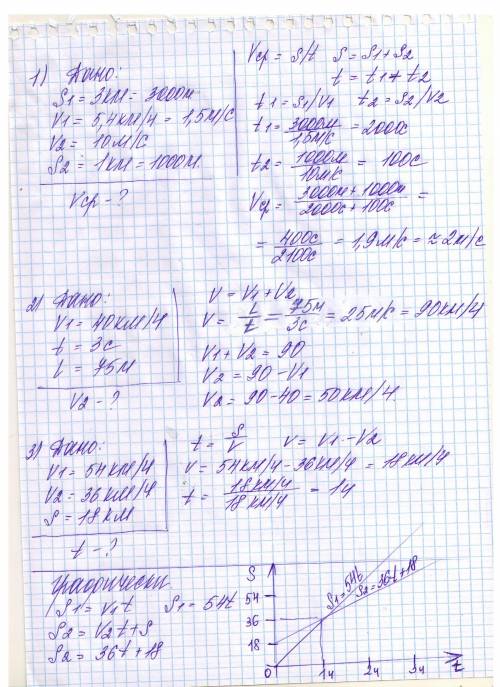 1) Дано:
S1 = 3км = 3000м
V1 = 5,4км/ч = 1,5м/с
V2 = 10м/с
S2 = 1км = 1000м.
Vср - ?
Vср = S/t S = S1 + S2
t = t1 + t2
t1 = S1/V1 t2 = S2/V2
t1 = 3000м / 1,5м/с = 2000с
t2 = 1000м / 10м/с = 100с
Vср = 3000м + 1000м / 2000с + 100с =
= 400с / 2100с = 1,9м/с = ≈ 2м/с
2) Дано:
V1 = 40км/ч
t = 3с
l = 75м
V2 - ?
V = V1 + V2
V = l / t = 75м / 3с = 25м/с = 90км/ч
V1 + V2 = 90
V2 = 90 - V1
V2 = 90 - 40 = 50км/ч.
3) Дано:
V1 = 54км/ч
V2 = 36км/ч
S = 18км
t - ?
t = S / V V = V1 - V2
V = 54км/ч - 36км/ч = 18км/ч
t = 18км/ч / 18км/ч = 1ч
Графически
S1 = V1t S1 = 54t
S2 = V2t + S
S2 = 36t + 18
S
54
36
18
0
1ч 2ч 3ч t
S1 = 54t
S2 = 36t + 18